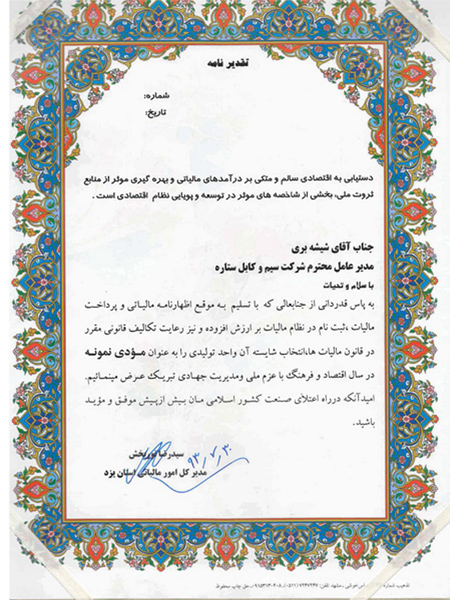 تقدیر نامه
شماره:
تاریخ:
دستیابی به اقتصادی سالم و متکی بر درآمدهای مالیاتی و بهره گیری موثر از منابع
ثروت ملی، بخشی از شاخصه های موثر در توسعه و پویایی نظام اقتصادی است .
جناب آقای شیشه بری
مدیر عامل محترم شرکت سیم و کابل ستاره
با سلام و تحیات
به پاس قدردانی از جنابعالی که با تسلیم به موقع اظهارنامه مالیاتی و پرداخت
مالیات ،ثبت نام در نظام مالیات بر ارزش افزوده و نیز رعایت تکالیف قانونی مقرر
در قانون مالیات ها،انتخاب شایسته آن واحد تولیدی را به عنوان مـؤدی نمونه
در سال اقتصاد و فرهنگ با عزم ملی ومدیریت جهادی تبریک عرض مینمائیم.
امیدآنکه درراه اعتلای صنعت کشور اسلامی مان بیش ازپیش موفق و مؤید
باشید.
سیدرضا نوربخش
مدیر کل امور مالیاتی استان یزد
۹۳,۷,۳۰
تذهیب شماره مشهد تلفن: حق چاپ محفوظ